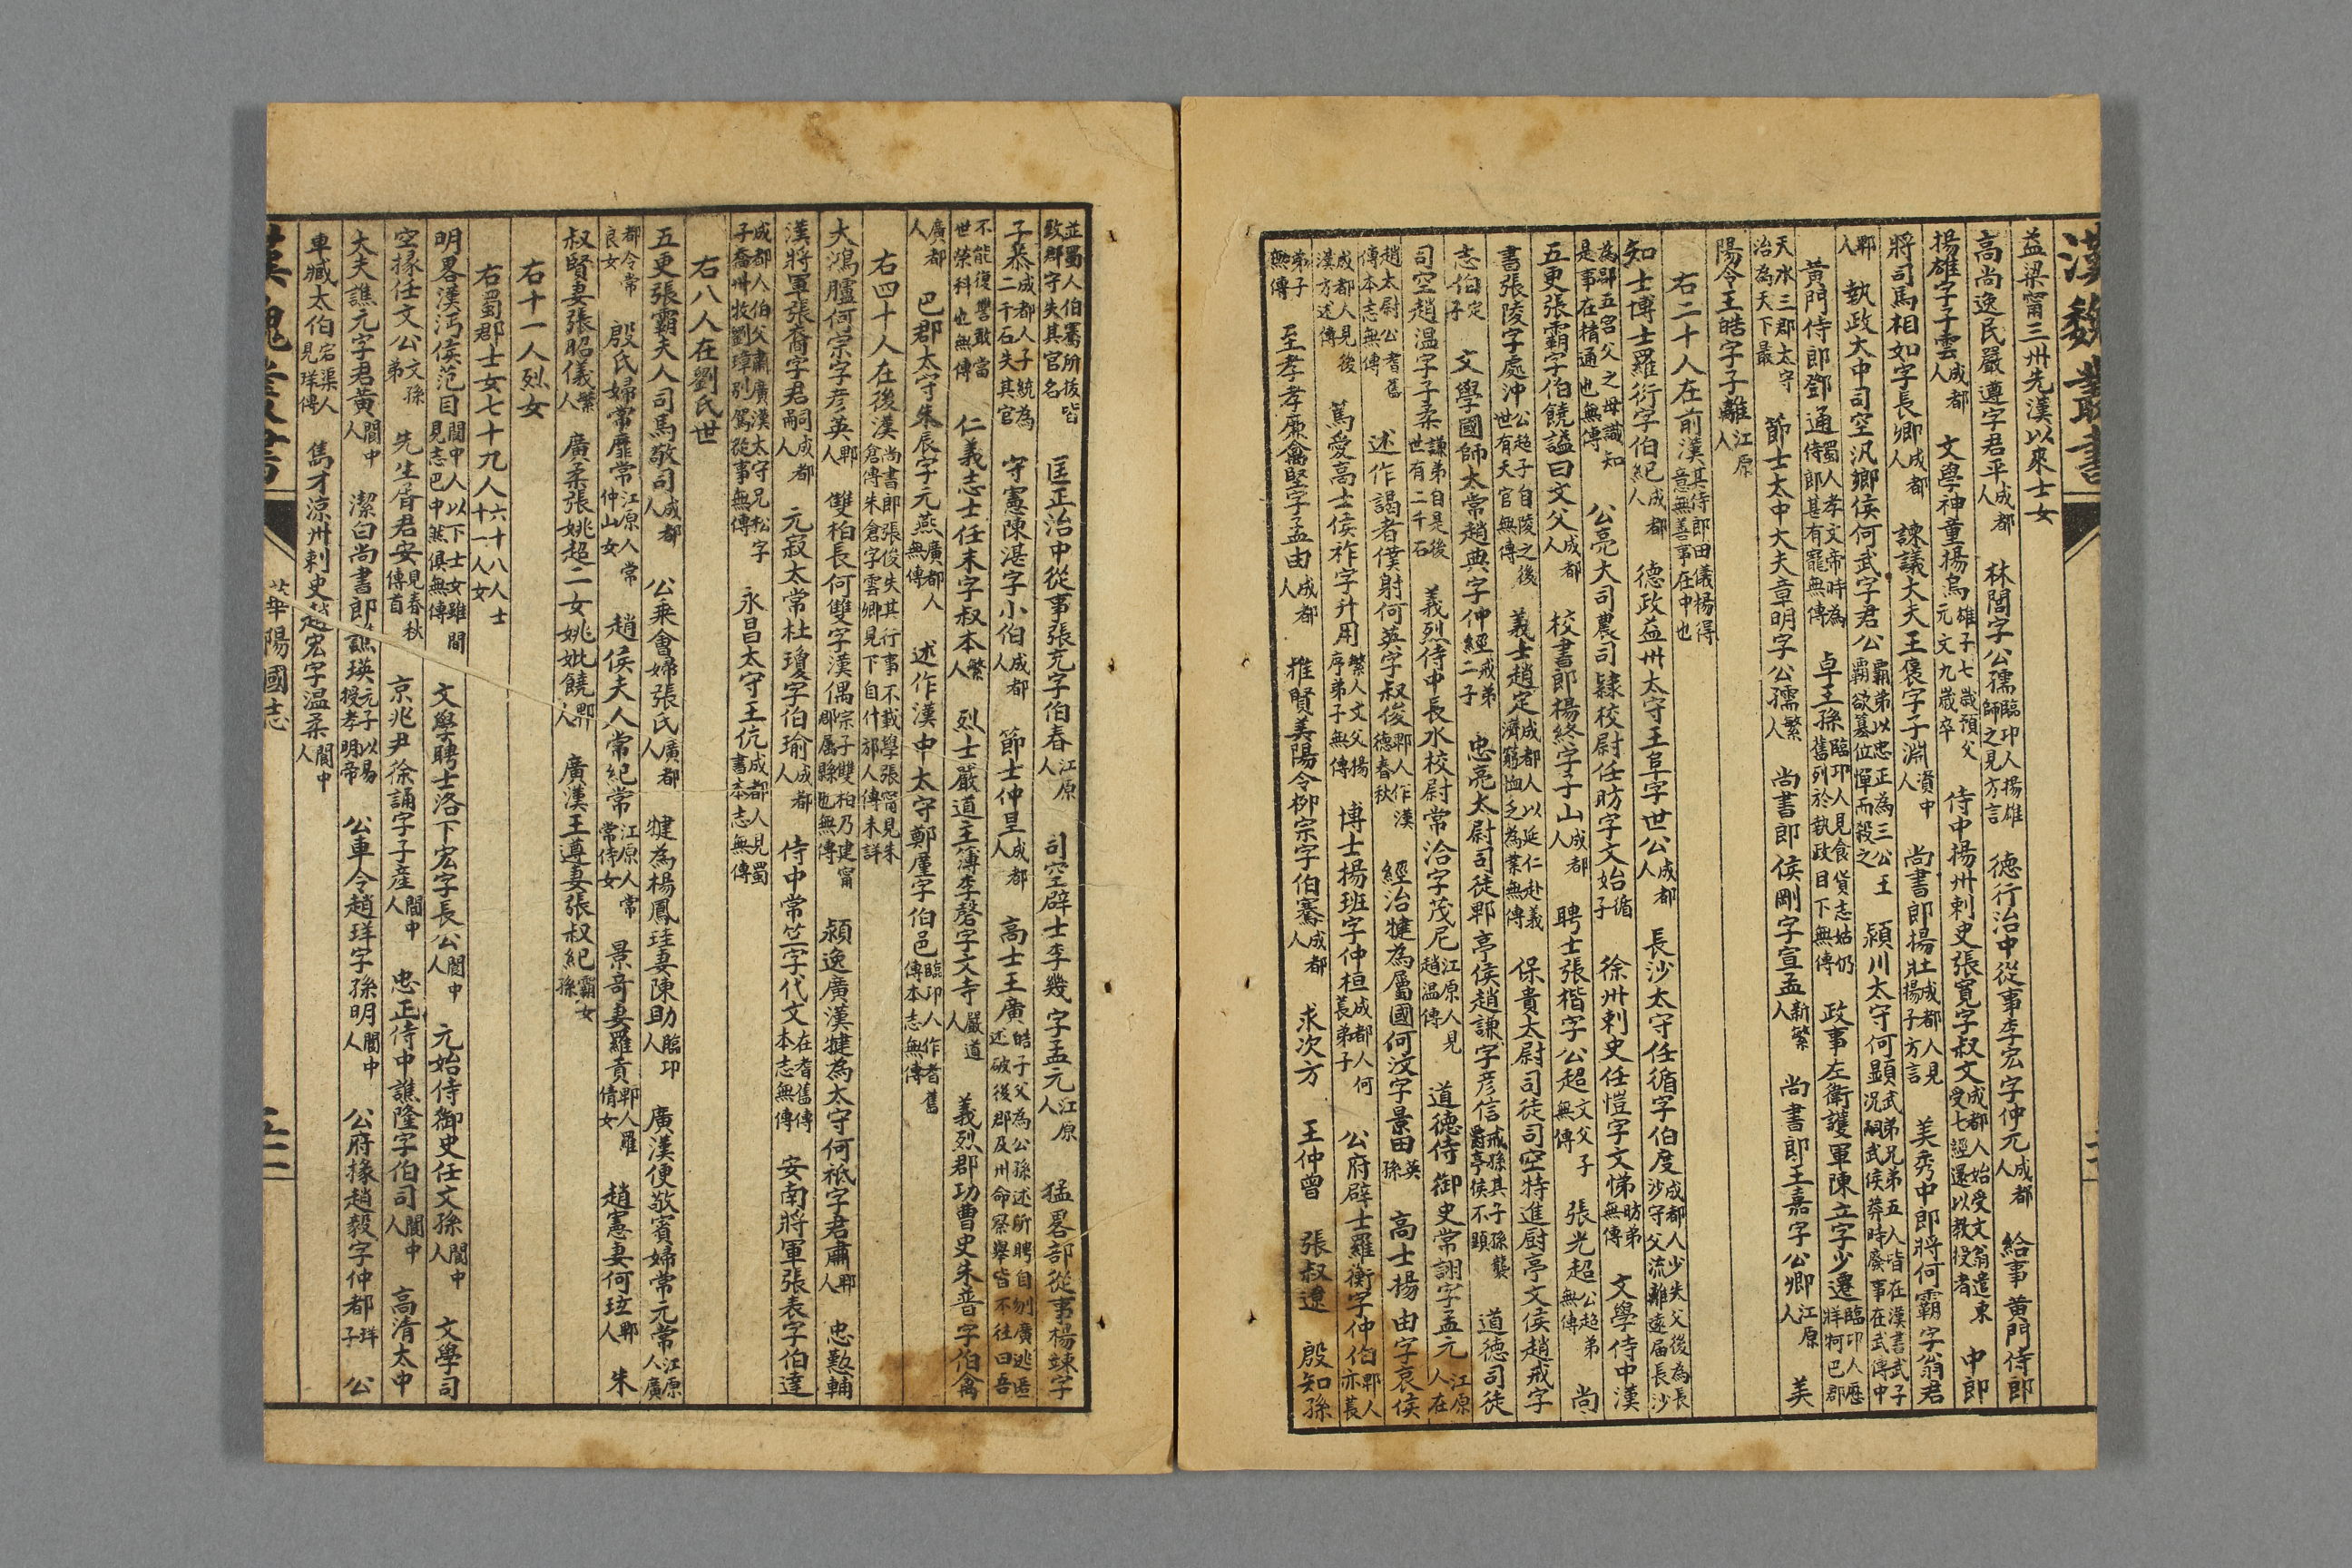 漢魏叢書
益梁甯三州先漢以來士女
高尚逸民嚴遵字君平成都人 林閭字公孺臨邛人揚雄師之見方言 德行治中從事李宏字仲元成都人 給事黃門侍郎
揚雄字子雲成都人 文學神童揚烏雄子七歲預父元文九歲卒 侍中揚州刺史張寬字叔文成都人始受文翁遣東受七經還以教授者 中郎
將司馬相如字長卿成都人 諫議大夫王褒字子淵資中人 尚書郎揚壯成都人見揚子方言 美秀中郎將何霸字翁君
郫人 執政大中司空汎鄉侯何武字君公霸弟以忠正為三公王莽欲篡位憚而殺之 潁川太守何顯武弟兄弟五人皆在漢書武子況嗣武侯莽時廢事在武傳中
黃門侍郎鄧通蜀人孝文帝時為侍郎甚有寵無傳 卓王孫臨邛人見食貨志姑仍舊列於執政目下無傳 政事左衛護軍陳立字少遷臨邛人歷牂牁巴郡
天水三郡太守治為天下最 節士太中大夫章明字公孺繁人 尚書郎侯剛字宣孟新繁人 尚書郎王嘉字公卿江原人 美
陽令王皓字子離江原人
右二十人在前漢其侍郎田儀楊得意無善事在中也
知士博士羅衍字伯紀成都人 德政益州太守王阜字世公成都人 長沙太守任循字伯度成都人少失父後為長沙守父流離遠届長沙
為郡五官父之母識知是事在精通也無傳 公亮大司農司隸校尉任昉字文始循子 徐州刺史任愷字文悌昉弟無傳 文學侍中漢
五更張霸字伯饒謚曰文父成都人 校書郎楊終字子山成都人 聘士張楷字公超文父子無傳 張光超公超弟無傳 尚
書張陵字處沖公超子自陵之後世有大官無傳 義士趙定成都人以延仁赴義濟窮恤乏為業無傳 保貴太尉司徒司空特進厨亭文侯趙戒字
志伯定子 文學國師太常趙典字仲經戒弟二子 忠亮太尉司徒郫亭侯趙謙字彦信戒孫其子孫襲爵亭侯不顯 道德司徒
司空趙温字子柔謙弟自是後世有二千石 義烈侍中長水校尉常洽字茂尼江原人見趙温傳 道德侍御史常詡字孟元江原人在
趙太尉公耆舊傳本志無傳 述作謁者僕射何英字叔俊郫人作漢德春秋 經治犍為屬國何汶字景田英孫 高士揚由字哀侯
成都人見後漢方术傳 篤愛高士侯祚字升用繁人文父揚序弟子無傳 博士揚班字仲桓成都人何萇弟子 公府辟士羅衡字仲伯郫人亦萇
弟子無傳 至孝孝廉禽堅字孟由成都人 推賢美陽令柳宗字伯騫成都人 求次方 王仲曾 張叔遼 殷知孫
並蜀人伯騫所拔皆致郡守失其官名 匡正治中從事張充字伯春江原人 司空辟士李幾字孟元江原人 猛畧部從事楊竦字
子恭成都人子統為二千石失其官 守憲陳湛字小伯成都人 節士仲呈成都人 高士王廣皓子父為公孫述所聘自刎廣逃匿述破後郡及州命察舉皆不往曰吾
不能復讐敢當世榮科也無傳 仁義志士任末字叔本繁人 烈士嚴道主簿李磬字文寺嚴道人 義烈郡功曹史朱普字伯禽
廣都人 巴郡太守朱辰字元燕廣都人無傳 述作漢中太守鄭廑字伯邑臨邛人作耆舊傳本志無傳
右四十人在後漢尚書郎張俊失其行事不載學張甯見朱倉傳朱倉字雲卿見下自什邡人傳未詳
大鴻臚何宗字彦英郫人 雙柏長何雙字漢偶宗子雙柏乃建甯郡屬縣也無傳 潁逸廣漢犍為太守何祗字君肅郫人 忠懿輔
漢將軍張裔字君嗣成都人 元寂太常杜瓊字伯瑜成都人 侍中常竺字代文在耆舊傳本志無傳 安南將軍張表字伯達
成都人伯父肅廣漢太守兄松字子喬州牧劉璋別駕從事無傳 永昌太守王伉成都人見蜀書本志無傳
右八人在劉氏世
五更張霸夫人司馬敬司成都人 公乘會婦張氏廣都人 犍為楊鳳珪妻陳助臨邛人 廣漢便敬賓婦常元常江原人廣
都令常良女 殷氏婦常靡常江原人常仲山女 趙侯夫人常紀常江原人常常侍女 景奇妻羅貢郫人羅倩女 趙憲妻何玹郫人 朱
叔賢妻張昭儀繁人 廣柔張姚超二女姚妣饒郫人 廣漢王遵妻張叔紀霸女孫
右十一人烈女
右蜀郡士女七十九人六十八人士十一人女
明畧漢沔侯范目閬中人以下士女雖閬見志巴中無俱無傳 文學聘士洛下宏字長公閬中人 元始侍御史任文孫閬中人 文學司
空掾任文公文孫弟 先生胥君安見春秋傳首 京兆尹徐誦字子産閬中人 忠正侍中譙隆字伯司閬中人 高清太中
大夫譙元字君黃閬中人 潔白尚書郎譙瑛元子以易授孝明帝 公車令趙珜字孫明閬中人 公府掾趙毅字仲都珜子 公
車臧太伯宕渠人見珜傳 雋才涼州刺史趙宏字温柔閬中人
漢魏叢書 華陽國志